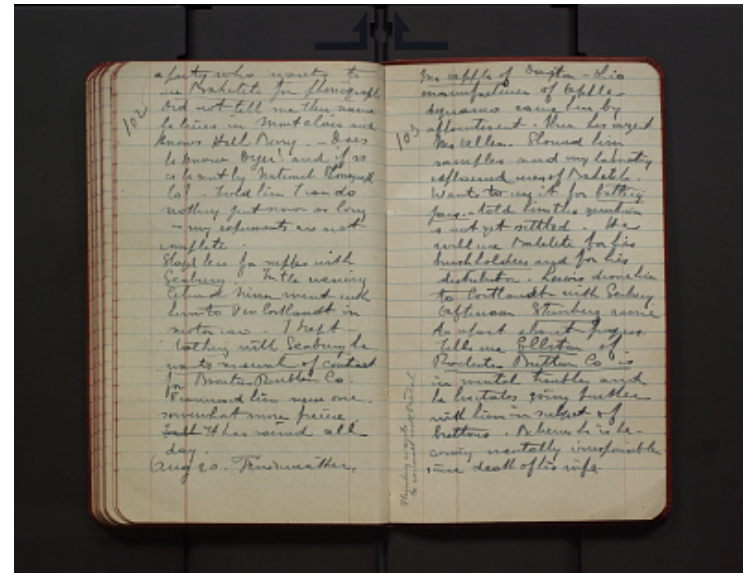 102
a party who wants to
use Bakelite for phonograph
Did not tell me their name
he lives in Montclair and
knows Hall Berry. - Does
he know Dyer? and if so
is he sent by National Phonograph
Co? - Told him I can do
nothing just now as long
- my experiments are not
complete.
Stayed here for supper with
Seabury. In the evening
Nina went with
him to Van Cortlandt in
motor car. - I kept
talking with Seabury he
wants renewal of contract
for Boston Rubber Co.
Promised him new one
somewhat more precise
It has rained all
day.
Aug 20. Fine weather.
103
Mr Apple of Dayton - Ohio
manufacturer of Apple
dynamo came here by
appointment. - Also his agent
Mr Allen. Showed him
samples and my laboratory
explained uses of Bakelite.
Wants to use it for battery
jars. - told him this question
is not yet settled. He
will use Bakelite for his
brush holders and for his
distributor. - Lewis drove him
to Cortlandt with Seabury
Afternoon Steinberg came
to
Tells me Ellston of
Rochester Button Co is
in mental trouble and
he hesitates going further
with him in subject of
buttons. Believes he is be-
coming mentally irresponsible
since death of his wife.
Steinberg
to